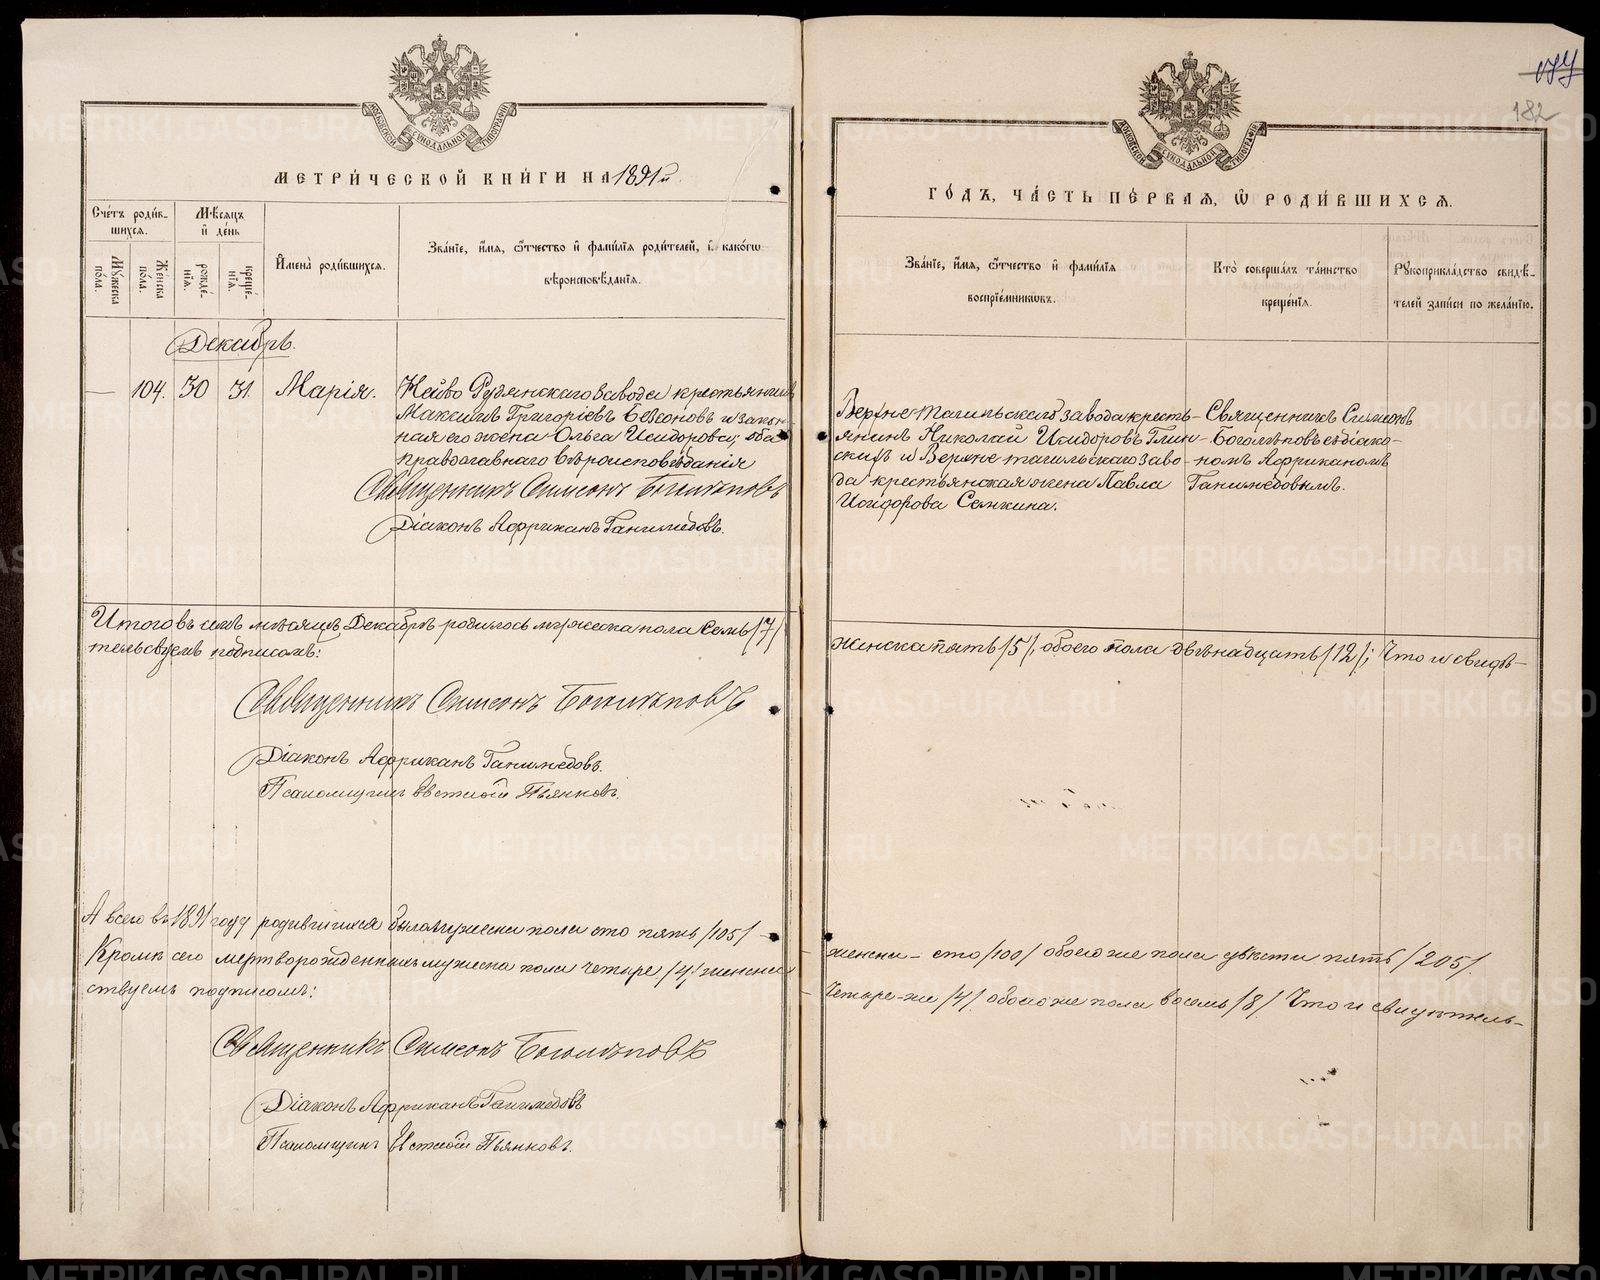 МОСКОВСКОЙ СѴНОДАЛЬНОЙ ТИПОГРАФІИ
МЕТРИ́ЧЕСКОЙ КНИ́ГИ НА 1891й
Сче́тъ роди́в-
шихся.
Мꙋжеска
по́ла.
Же́нска
по́ла.
Мѣ́сяцъ
и҆ де́нь
рожде́-
нїѧ.
креще́-
нїѧ.
И҆мена̀ роди́вшихсѧ.
Зва́нїе, и҆́мѧ, ѻ҆́тчество и҆ фами́лїѧ роди́телей, и҆ како́гѡ
вѣроисповѣ́данїѧ.
Декабрь.
— 104. 30 31. Марія.
Нейво Рудянскаго завода крестьянинъ
Максимъ Григоріевъ и закон-
ная его жена Ольга Исидорова; оба
православнаго вѣроисповѣданія
Священникъ Симеонъ Боголѣповъ
Діаконъ Африканъ Ганимедовъ.
Итого въ семъ мѣсяцѣ Декабрѣ родилось мужеска пола семь /7/
тельсвуемъ подписомъ:
Священникъ Симеонъ Боголѣповъ
Діаконъ Африканъ Ганимедовъ.
Псаломщикъ Пьянковъ.
А всего въ 1891 году родившихся было мужеска пола сто пять /105/ —
Кромѣ сего мертворожденныхъ мужеска пола четыре /4/ женска
ствуемъ подписомъ:
Священникъ Симеонъ Боголѣповъ
Діаконъ Африканъ Ганимедовъ
Псаломщикъ Пьянковъ.
182
МОСКОВСКОЙ СѴНОДАЛЬНОЙ ТИПОГРАФІИ
ГО́ДЪ, ЧА́СТЬ ПЕ́РВАѦ, Ѡ҆ РОДИ́ВШИХСѦ.
Зва́нїе, и҆́мѧ, ѻ҆́тчество и҆ фами́лїѧ
воспрїе́мникѡвъ.
Кто̀ соверша́лъ та́инство
креще́нїѧ.
Рꙋкоприкла́дство свидѣ́-
телей за́писи по жела́нїю.
Верхне Тагильскаго завода кресть-
янинъ Николай Исидоровъ Глин-
скихъ и Верхне тагильскаго заво-
да крестьянская жена Павла
Исидорова Семкина.
Священникъ Симеонъ
Боголѣповъ съ діако-
номъ Африканомъ
Ганимедовымъ.
женска пять /5/, обоего пола двѣнадцать /12/; Что и свидѣ-
женска — сто /100/ обоего же пола двѣсти пять /205/.
четыре-же /4/ обоего же пола восемь /8/ Что и свидѣтель-
METRIKI.GASO-URAL.RU